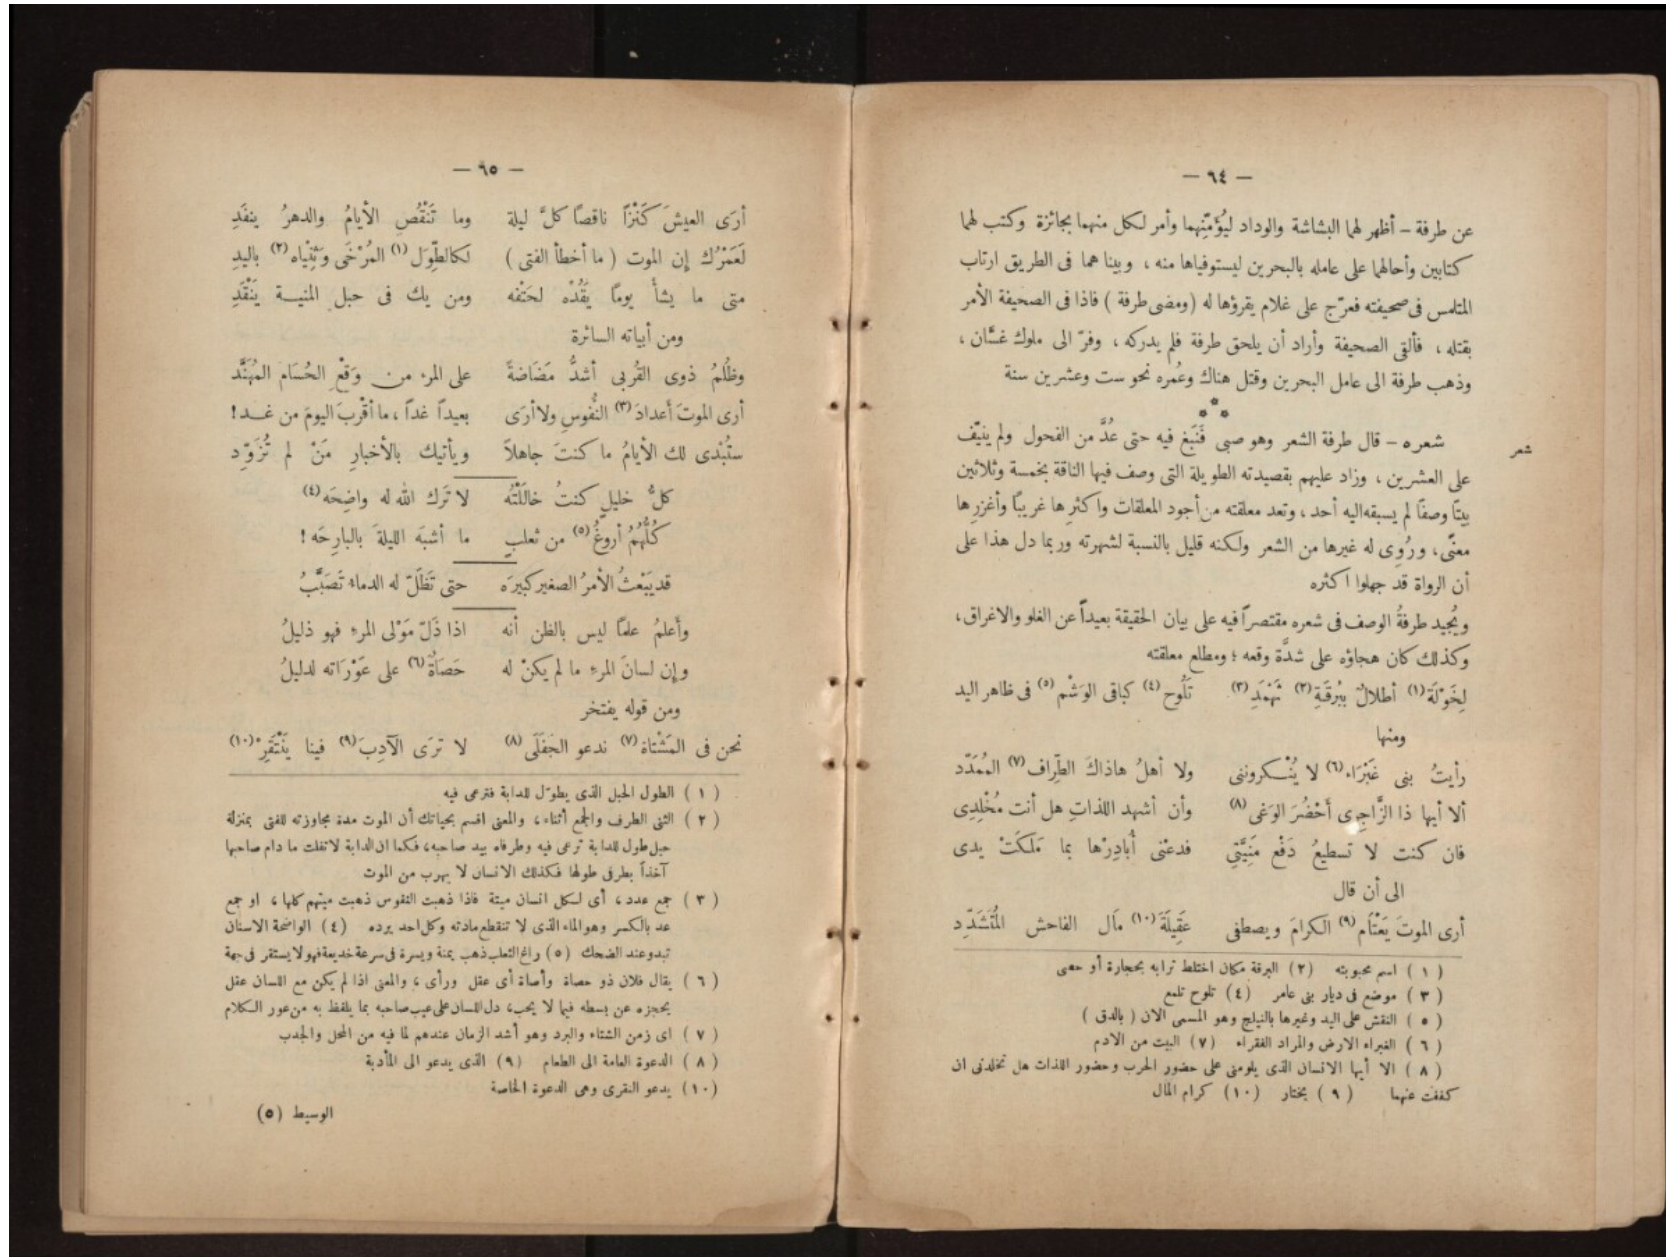 — ٦٤ —
عن طرفة – أظهر لهما البشاشة والوداد ليُؤمِّنهما وأمر لكل منهما بجائزة وكتب لهما
كتابين وأحالهما على عامله بالبحرين ليستوفياها منه ، وبينا هما فى الطريق ارتاب
المتلمس فى صحيفته فعرّج على غلام يقرؤها له (ومضى طرفة) فاذا فى الصحيفة الأمر
بقتله ، فألقى الصحيفة وأراد أن يلحق طرفة فلم يدركه ، وفرّ الى ملوك غسَّان ،
وذهب طرفة الى عامل البحرين وقتل هناك وعُمره نحو ست وعشرين سنة
***
شعر
شعره – قال طرفة الشعر وهو صبى فَنَبغ فيه حتى عُدَّ من الفحول ولم ينيّف
على العشرين ، وزاد عليهم بقصيدته الطويلة التى وصف فيها الناقة بخمسة وثلاثين
بيتًا وصفًا لم يسبقه اليه أحد ، وتعد معلقته من أجود المعلقات واكثرِها غريبًا وأغزرِها
معنًى، ورُوِى له غيرها من الشعر ولكنه قليل بالنسبة لشهرته وربما دل هذا على
أن الرواة قد جهلوا اكثره
ويُجيد طرفةُ الوصف فى شعره مقتصراً فيه على بيان الحقيقة بعيداً عن الغلو والاغراق ،
وكذلك كان هجاؤه على شدَّة وقعه ؛ ومطلع معلقته
لِخَوْلَة (١) أطلالٌ ببُرقَةِ (٢) ثَهْمَدِ (٣) تَلُوح (٤) كباقى الوَشْم (٥) فى ظاهر اليد
ومنها
رأيتُ بنى غَبْرَاء (٦) لا يُنْكروننى ولا أهلُ هاذاكَ الطِّراف (٧) المُمَدّد
ألا أيها ذا الزَّاجِرِى أَحْضُرَ الوَغى (٨) وأن أشهد اللذاتِ هل أنت مُخْلِدِى
فان كنت لا تسطيعُ دَفْع مَنِيَّتِى فدعنى أُبادِرْها بما مَلَكَتْ يدى
الى أن قال
أرى الموتَ يَعْتَام (٩) الكرامَ ويصطفى عَقِيلَةَ (١٠) مَال الفاحش المُتَشَدِّد
(١) اسم محبوبته (٢) البرقة مكان اختلط ترابه بحجارة أو حصى
(٣) موضع فى ديار بنى عامر (٤) تلوح تلمع
(٥) النقش على اليد وغيرها بالنيلج وهو المسمى الان (بالدق)
(٦) الغبراء الارض والمراد الفقراء (٧) البيت من الادم
(٨) الا أيها الانسان الذى يلومنى على حضور الحرب وحضور اللذات هل تخلدنى ان
كففت عنهما (٩) يختار (١٠) كرام المال
— ٦٥ —
أرَى العيشَ كَنْزاً ناقصًا كلَّ ليلة وما تَنْقُصِ الأيامُ والدهرُ ينفَدِ
لَعَمْرُك إن الموت (ما أخطأ الفتى) لَكالطِّوَل (١) المُرْخَى وَثِنْياه (٢) باليدِ
متى ما يشأ يومًا يَقُدْه لحَتْفه ومن يك فى حبل المنيــة يَنْقَدِ
ومن أبياته السائرة
وظُلمُ ذوى القُربى أشدُّ مَضَاضةً على المرء من وَقْعِ الحُسَام المُهنَّد
أرى الموتَ أعدادَ (٣) النُّفوسِ ولا أرَى بعيداً غداً ، ما أقْربَ اليومَ من غــد !
ستُبْدى لك الأيامُ ما كنتَ جاهلاً ويأتيك بالأخبارِ مَنْ لم تُزَوِّد
كلُّ خليلٍ كنتُ خالَلْتُه لا تَرك الله له واضِحَه (٤)
كُلُّهُمُ أروغُ (٥) من ثعلبٍ ما أشبَه الليلةَ بالبارِحَه !
قد يَبْعثُ الأمرُ الصغير كبيرَه حتى تَظَلّ له الدماء تَصَبَّبُ
وأعلمُ علمًا ليس بالظن أنه اذا ذَلّ مَوْلى المرءِ فهو ذليلُ
وإن لسانَ المرءِ ما لم يكنْ له حَصَاةٌ (٦) على عَوْرَاته لدليلُ
ومن قوله يفتخر
نحن فى المَشْتاة (٧) ندعو الجَفَلَى (٨) لا ترَى الآدِبَ (٩) فينا يَنْتَقِرْ (١٠)
(١) الطول الحبل الذى يطوّل للدابة فترعى فيه
(٢) الثنى الطرف والجمع أثناء ، والمعنى اقسم بحياتك أن الموت مدة مجاوزته للفتى بمنزلة
حبل طول للدابة ترعى فيه وطرفاه بيد صاحبه، فكما ان الدابة لاتفلت ما دام صاحبها
آخذاً بطرفى طولها فكذلك الانسان لا يهرب من الموت
(٣) جمع عدد ، أى لكل انسان ميتة فاذا ذهبت النفوس ذهبت ميتهم كلها ، او جمع
عد بالكسر وهو الماء الذى لا تنقطع مادته وكل احد يرده (٤) الواضحة الاسنان
تبدو عند الضحك (٥) راغ الثعلب ذهب يمنة ويسرة فى سرعة خديعة فهو لا يستقر فى جهة
(٦) يقال فلان ذو حصاة وأصاة أى عقل ورأى ، والمعنى اذا لم يكن مع اللسان عقل
يحجزه عن بسطه فيما لا يحب، دل اللسان على عيب صاحبه بما يلفظ به من عور الكلام
(٧) اى زمن الشتاء والبرد وهو أشد الزمان عندهم لما فيه من المحل والجدب
(٨) الدعوة العامة الى الطعام (٩) الذى يدعو الى المأدبة
(١٠) يدعو النقرى وهى الدعوة الخاصة
الوسيط (٥)